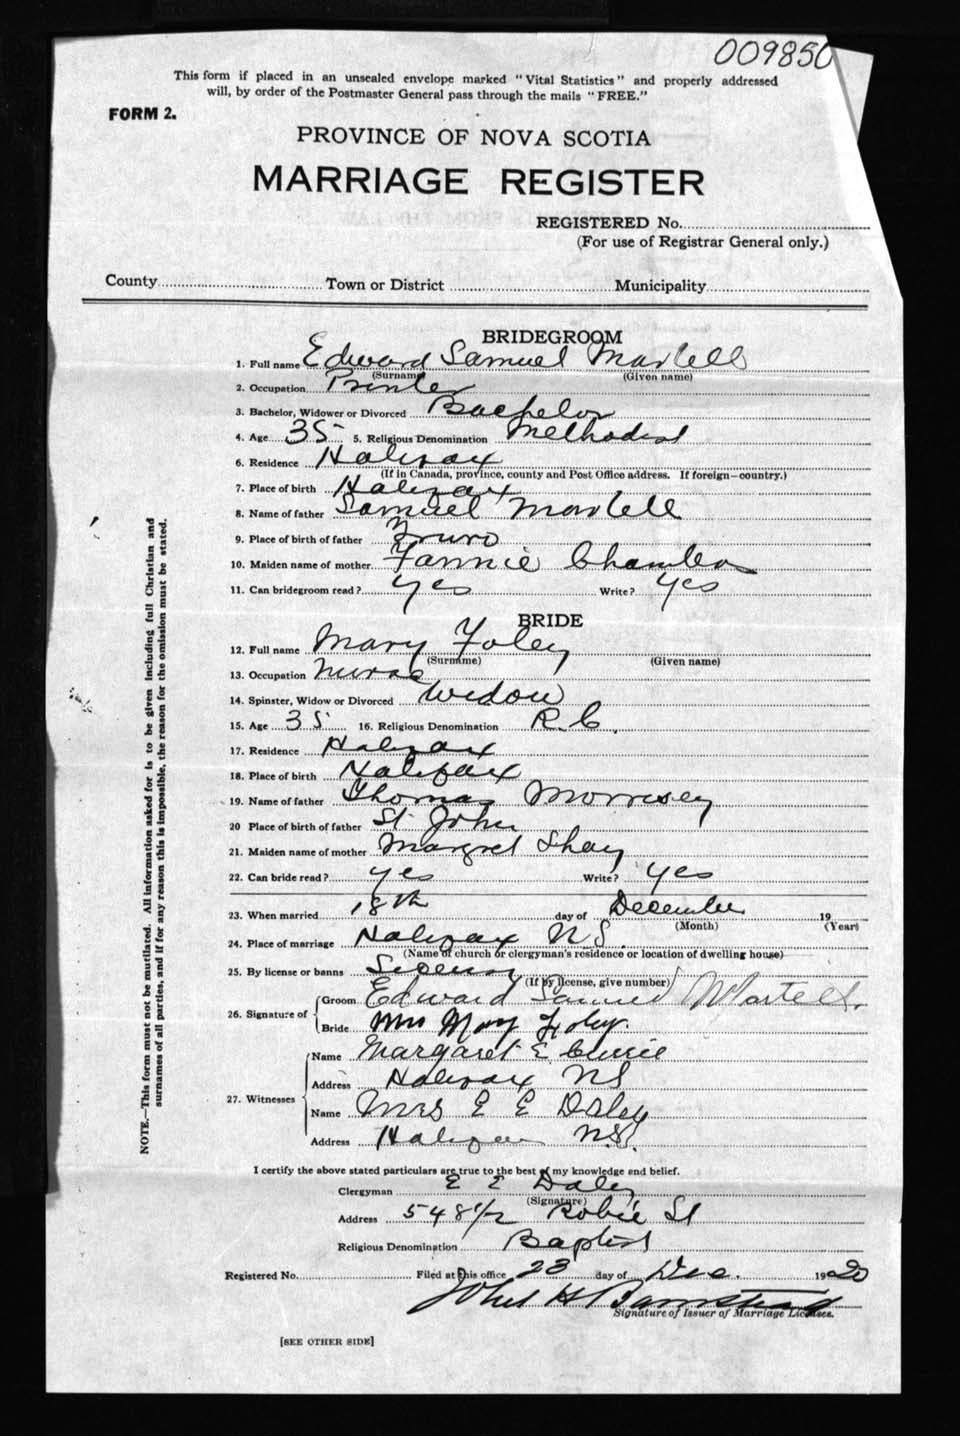 009850
This form if placed in an unsealed envelope marked "Vital Statistics" and properly addressed
will, by order of the Postmaster General pass through the mails "FREE."
FORM 2.
PROVINCE OF NOVA SCOTIA
MARRIAGE REGISTER
REGISTERED No.
(For use of Registrar General only.)
County Town or District Municipality
BRIDEGROOM
1. Full name Edward Samuel Martell
(Surname) (Given name)
2. Occupation Printer
3. Bachelor, Widower or Divorced Bachelor
4. Age 35 5. Religious Denomination Methodist
6. Residence Halifax
(If in Canada, province, county and Post Office address. If foreign—country.)
7. Place of birth Halifax
8. Name of father Samuel Martell
9. Place of birth of father Truro
10. Maiden name of mother Fannie Chambers
11. Can bridegroom read? yes Write? yes
BRIDE
12. Full name Mary Foley
(Surname) (Given name)
13. Occupation Nurse
14. Spinster, Widow or Divorced Widow
15. Age 35 16. Religious Denomination R.C.
17. Residence Halifax
18. Place of birth Halifax
19. Name of father Thomas Morrisey
20 Place of birth of father St John
21. Maiden name of mother Margret Shay
22. Can bride read? yes Write? yes
23. When married 18th day of December 19
(Month) (Year)
24. Place of marriage Halifax N.S.
(Name of church or clergyman's residence or location of dwelling house)
25. By license or banns
(If by license, give number)
26. Signature of
Groom Edward Samuel Martell.
Bride Mrs Mary Foley.
27. Witnesses
Name Margaret E Currie
Address Halifax NS
Name Mrs E E Daley
Address Halifax N.S.
I certify the above stated particulars are true to the best of my knowledge and belief.
Clergyman E E Daley
(Signature)
Address 548 1/2 Robie St
Religious Denomination Baptist
Registered No. Filed at this office 23 day of Dec. 1920
John H Barnstead
Signature of Issuer of Marriage Licenses.
[SEE OTHER SIDE]
NOTE.—This form must not be mutilated. All information asked for is to be given including full Christian and
surnames of all parties, and if for any reason this is impossible, the reason for the omission must be stated.